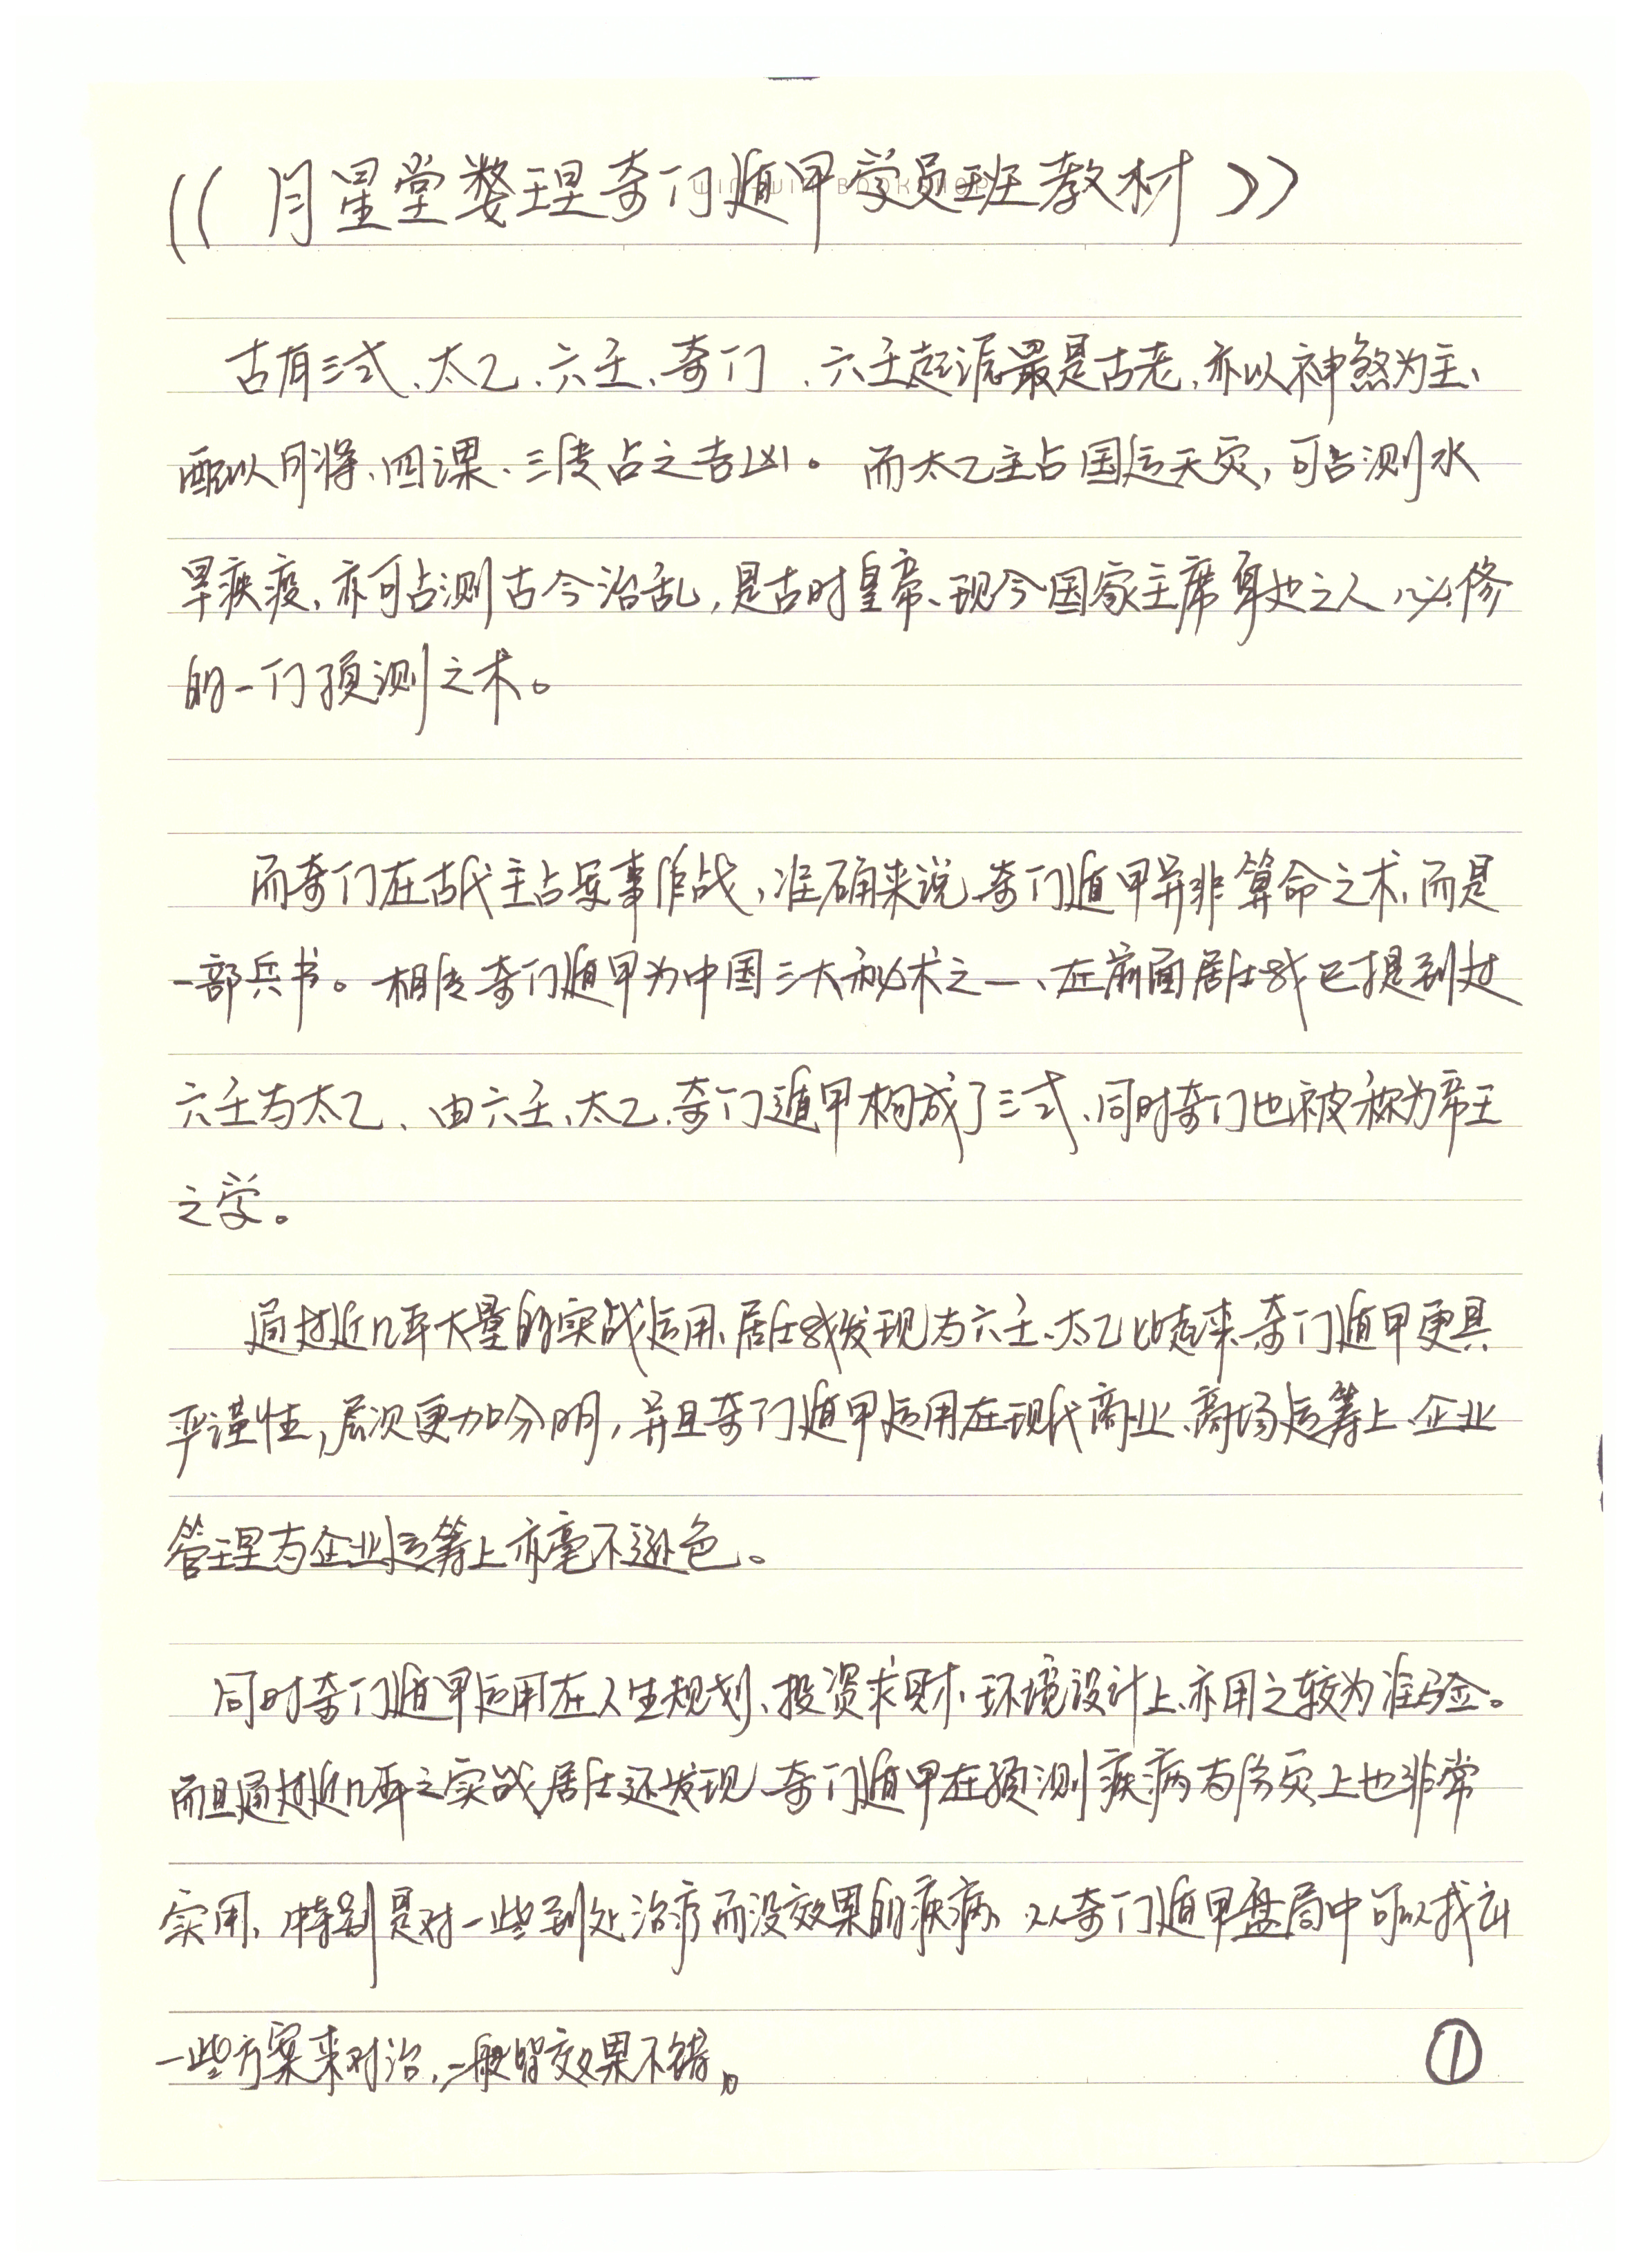 《月星堂整理奇门遁甲学员班教材》
WIN-WIN BOOKSHOP
古有三式、太乙、六壬、奇门、六壬起源最是古老,亦以神煞为主、
配以月将、四课、三传占之吉凶。而太乙主占国运天灾,可占测水
旱疾疫,亦可占测古今治乱,是古时皇帝、现今国家主席身边之人必修
的一门预测之术。
而奇门在古代主占军事作战,准确来说、奇门遁甲并非算命之术、而是
一部兵书。相传奇门遁甲为中国三大秘术之一、在前面居士我已提到过
六壬与太乙、由六壬、太乙、奇门遁甲构成了三式、同时奇门也被称为帝王
之学。
通过近几年大量的实战运用、居士我发现与六壬、太乙比起来、奇门遁甲更具
严谨性,层次更加分明,并且奇门遁甲运用在现代商业、商场运筹上、企业
管理与企业运筹上亦毫不逊色。
同时奇门遁甲运用在人生规划、投资求财、环境设计上、亦用之较为准验。
而且通过近几年之实战、居士还发现、奇门遁甲在预测疾病与伤灾上也非常
实用、特别是对一些到处治疗而没效果的疾病、从奇门遁甲盘局中可以找出
一些方案来对治,一般皆效果不错。
①